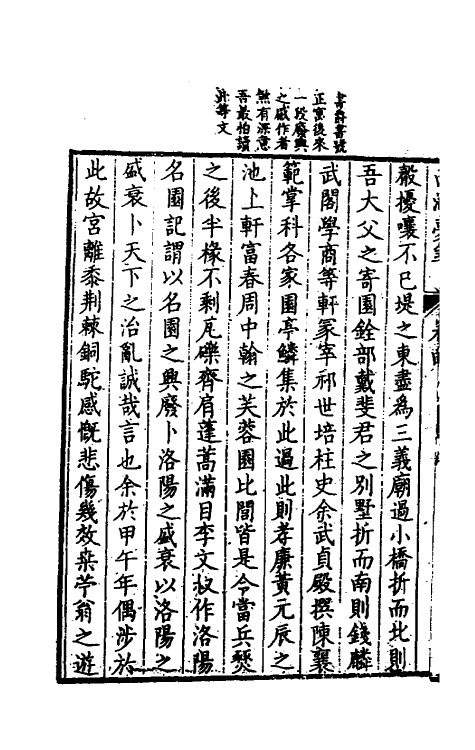 書爵書號
正寫後來
一段廢興
之感作者
煞有深意
吾最怕讀
此等文
轂擾嚷不已堤之東盡爲三義廟過小橋折而北則
吾大父之寄園銓部戴斐君之別墅折而南則錢麟
武閣學商等軒冢宰祁世培柱史余武貞殿撰陳襄
範掌科各家園亭鱗集於此過此則孝廉黄元辰之
池上軒富春周中翰之芙蓉園比閭皆是今當兵燹
之後半椽不剩瓦礫齊肩蓬蒿滿目李文叔作洛陽
名園記謂以名園之興廢卜洛陽之盛衰以洛陽之
盛衰卜天下之治亂誠哉言也余於甲午年偶涉於
此故宮離黍荆棘銅駝感慨悲傷幾效桑苧翁之遊